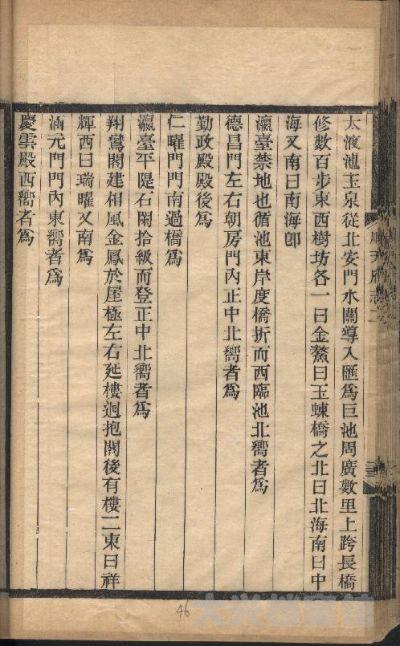 太液池玉泉從北安門水關導入匯爲巨池周廣數里上跨長橋
修數百步東西樹坊各一曰金鰲曰玉蝀橋之北曰北海南曰中
海又南曰南海卽
瀛臺禁地也循池東岸度橋折而西臨池北嚮者爲
德昌門左右朝房門內正中北嚮者爲
勤政殿殿後爲
仁曜門門南過橋爲
瀛臺平隄石闌拾級而登正中北嚮者爲
翔鸞閣建相風金鳳於屋極左右延樓迴抱閣後有樓二東曰祥
輝西曰瑞曜又南爲
涵元門門內東嚮者爲
慶雲殿西嚮者爲
46